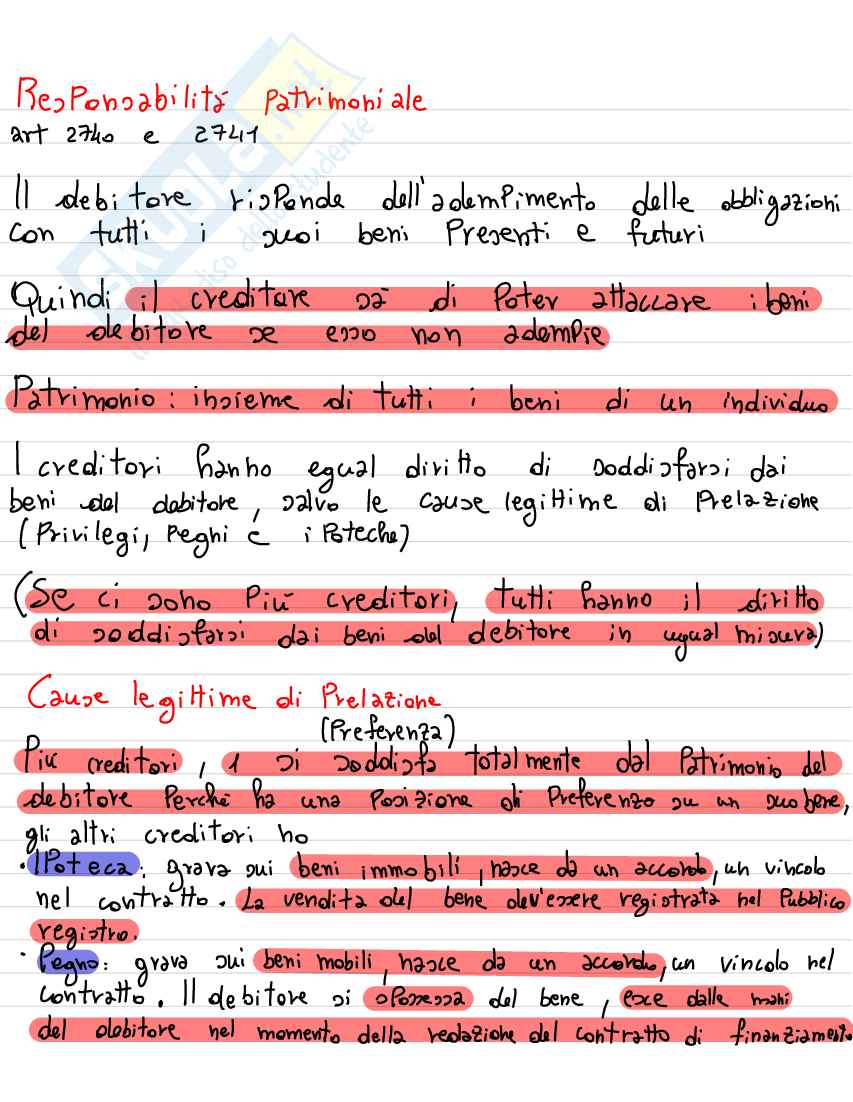 Responsabilità patrimoniale
art 2740 e 2741
Il debitore risponde dell'adempimento delle obbligazioni
con tutti i suoi beni presenti e futuri
Quindi il creditore sa di poter attaccare i beni
del debitore se esso non adempie
Patrimonio: insieme di tutti i beni di un individuo
I creditori hanno egual diritto di soddisfarsi dai
beni del debitore, salvo le cause legittime di prelazione
(privilegi, peghi e ipoteche)
(Se ci sono più creditori, tutti hanno il diritto
di soddisfarsi dai beni del debitore in ugual misura)
Cause legittime di prelazione
(preferenza)
Più creditori, 1 si soddisfa totalmente dal patrimonio del
debitore perché ha una posizione di preferenza su un suo bene,
gli altri creditori no
· Ipoteca: grava sui beni immobili, nasce da un accordo, un vincolo
nel contratto. La vendita del bene dev'essere registrata nel pubblico
registro.
· Pegno: grava sui beni mobili, nasce da un accordo, un vincolo nel
contratto. Il debitore si spossessa del bene, esce dalle mani
del debitore nel momento della redazione del contratto di finanziamento
SKUOLA.net
il paradiso dello studente